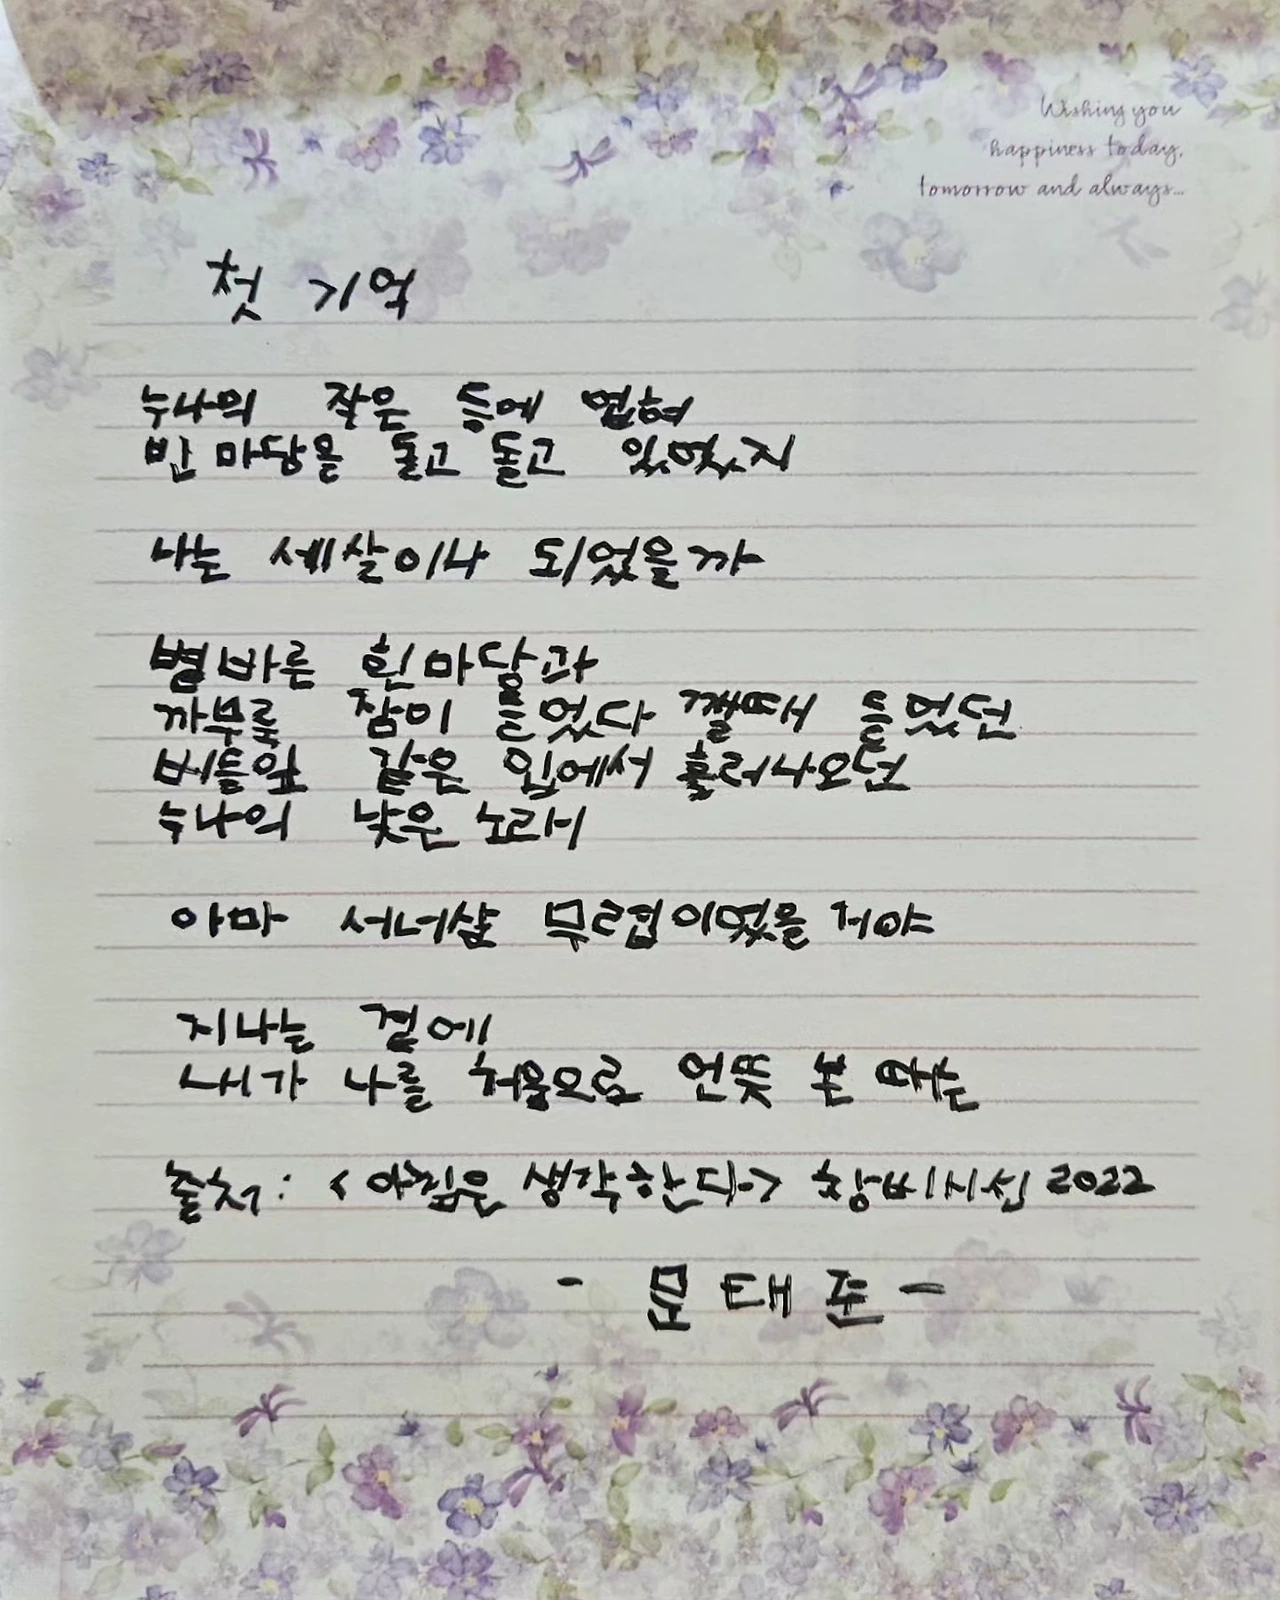 Wishing you
happiness today,
tomorrow and always...
첫 기억
누나의 작은 등에 업혀
빈 마당을 돌고 돌고 있었지
나는 세살이나 되었을까
볕바른 흰 마당과
까무룩 잠이 들었다 깰때 들었던
버들잎 같은 입에서 흘러나오던
누나의 낮은 노래
아마 서너살 무렵이었을 거야
지나는 결에
내가 나를 처음으로 언뜻 본 때는
출처: <아침은 생각한다> 창비시선 2022
- 문 태 준 -